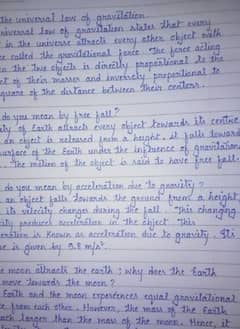 the universal law of gravitation.
universal law of gravitation states that every
in the universe attracts every other object with
ce called the gravitational force. The force acting
n the two objects is directly proportional to the
ct of their masses and inversely proportional to
square of the distance between their centers.
do you mean by free fall?
ity of Earth attracts every object towards its centre.
an object is released from a height, it falls towards
surface of the Earth under the influence of gravitational
The motion of the object is said to have free fall.
do you mean by acceleration due to gravity?
an object falls towards the ground from a height,
its velocity changes during the fall. This changing
city produces acceleration in the object. This
eration is known as acceleration due to gravity. Its
ue is given by 9.8 m/s².
e moon attracts the earth; why does the Earth
move towards the moon?
Earth and the moon experiences equal gravitational
ce from each other. However, the mass of the Earth
uch larger than the mass of the moon. Hence, it